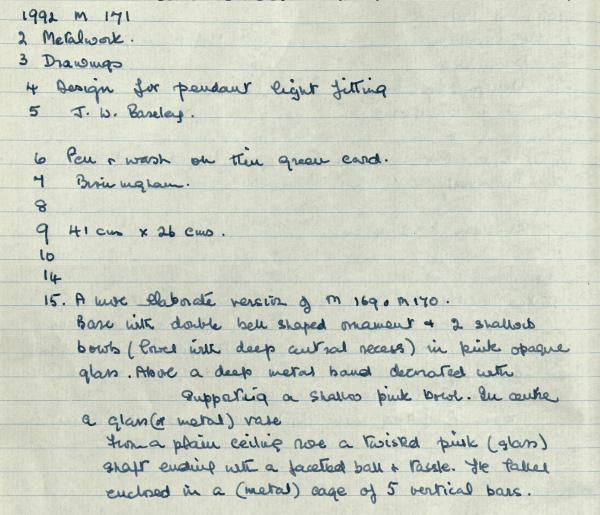 1992 M 171
2 Metalwork.
3 Drawings
4 Design for pendant light fitting
5 J. W. Baseley.
6 Pen + wash on thin green card.
7 Birmingham.
8
9 41 cms x 26 cms.
10
14
15. A more elaborate version of M 169 + M170.
Base with double bell shaped ornament + 2 shallow
bowls (lower with deep central recess) in pink opaque
glass. Above a deep metal band decorated with
supporting a shallow pink bowl. In centre
a glass (or metal) vase
From a plain ceiling rose a twisted pink (glass)
shaft ending with a faceted ball + tassle. The latter
enclosed in a (metal) cage of 5 vertical bars.